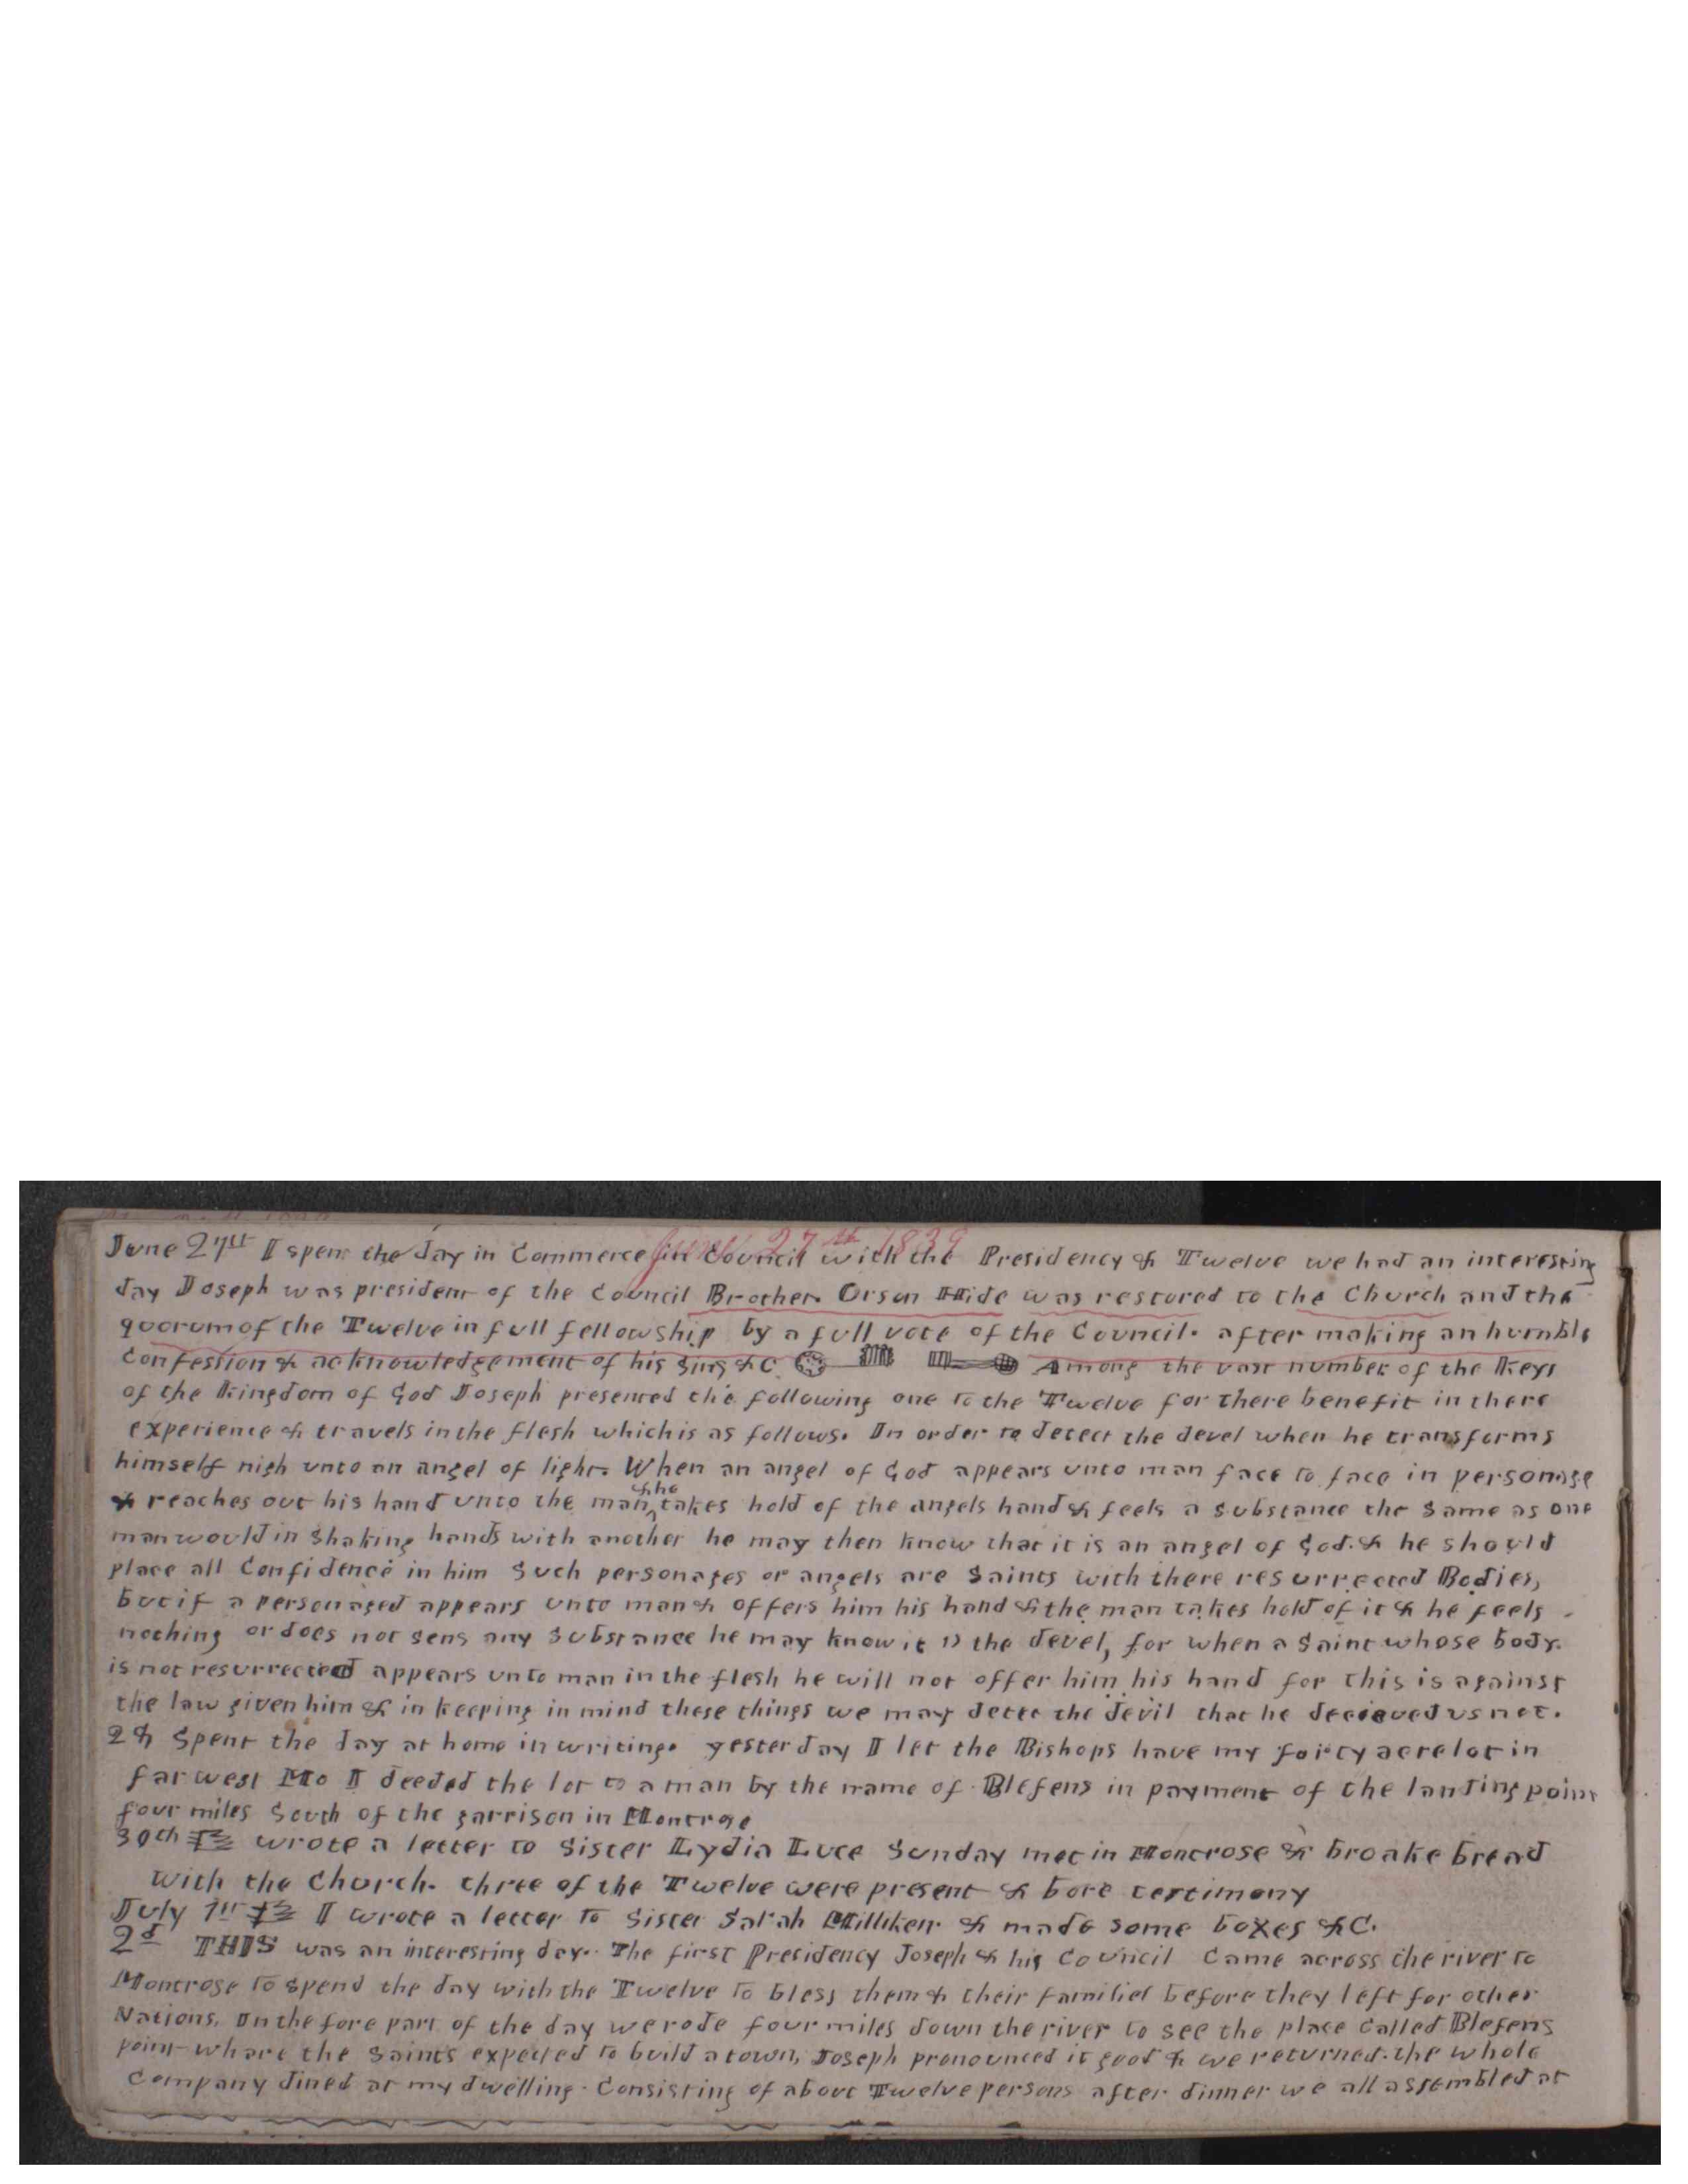 June 27th 1839
June 27th I spent the day in Commerce in Council with the Presidency & Twelve we had an interesting
day Joseph was president of the Council Brother Orson Hide was restored to the Church and the
quorum of the Twelve in full fellowship by a full vote of the Council. after making an humble
Confession & acknowledgement of his sins &C Among the vast number of the Keys
of the Kingdom of God Joseph presented the following one to the Twelve for there benefit in there
experience & travels in the flesh which is as follows. In order to detect the devel when he transforms
himself nigh unto an angel of light. When an angel of God appears unto man face to face in personage
& reaches out his hand unto the man & he takes hold of the angels hand & feels a substance the Same as one
man would in shaking hands with another he may then know that it is an angel of God. & he should
place all Confidence in him Such personages or angels are Saints with there resurrected Bodies,
but if a personaged appears unto man & offers him his hand & the man takes hold of it & he feels
nothing or does not sens any substance he may know it is the devel, for when a Saint whose body
is not resurrected appears unto man in the flesh he will not offer him his hand for this is against
the law given him & in keeping in mind these things we may detec the devil that he decieved us not.
28 Spent the day at home in writing. yesterday I let the Bishops have my forty acre lot in
far west Mo I deeded the lot to a man by the name of Blefens in payment of the landing point
four miles South of the garrison in Montrose
30th wrote a letter to Sister Lydia Luce Sunday met in Montrose & broake bread
with the Church. three of the Twelve were present & bore testimony
July 1st I wrote a letter to Sister Sarah Milliken & made some boxes &C.
2d THIS was an interesting day. The first Presidency Joseph & his Council Came across the river to
Montrose to spend the day with the Twelve to bless them & their families before they left for other
Nations. In the fore part of the day we rode four miles down the river to see the place Called Blefens
point whare the Saints expected to build a town, Joseph pronounced it good & we returned. the whole
Company dined at my dwelling. Consisting of about Twelve persons after dinner we all assembled at